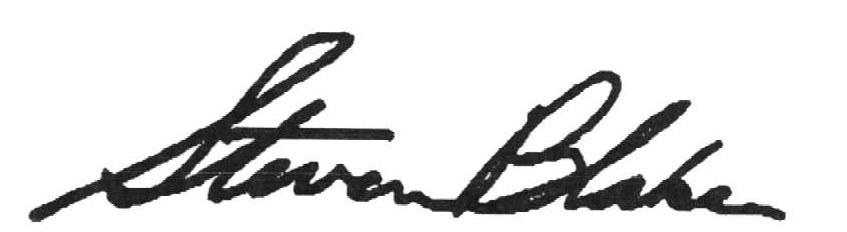 Steven Blake